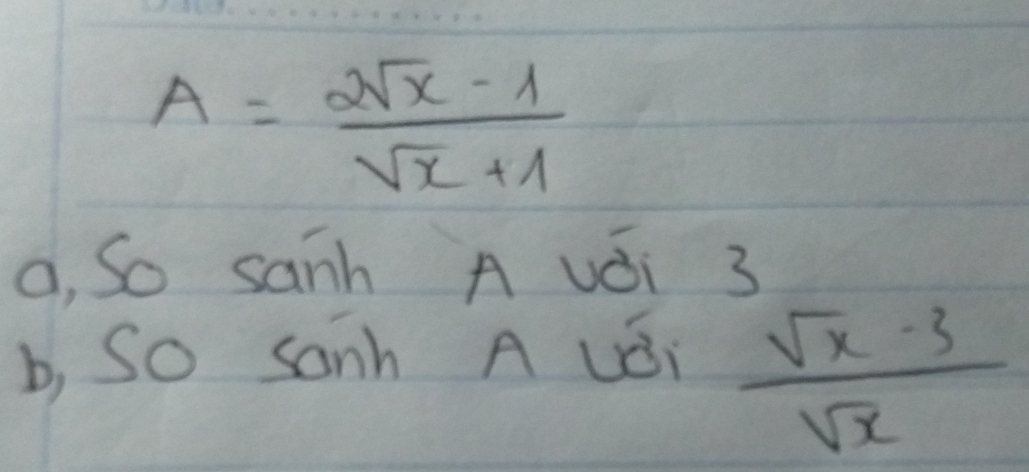 Data
A = (2√x - 1)/(√x + 1)
a, So sánh A với 3
b, So sánh A với (√x - 3)/√x